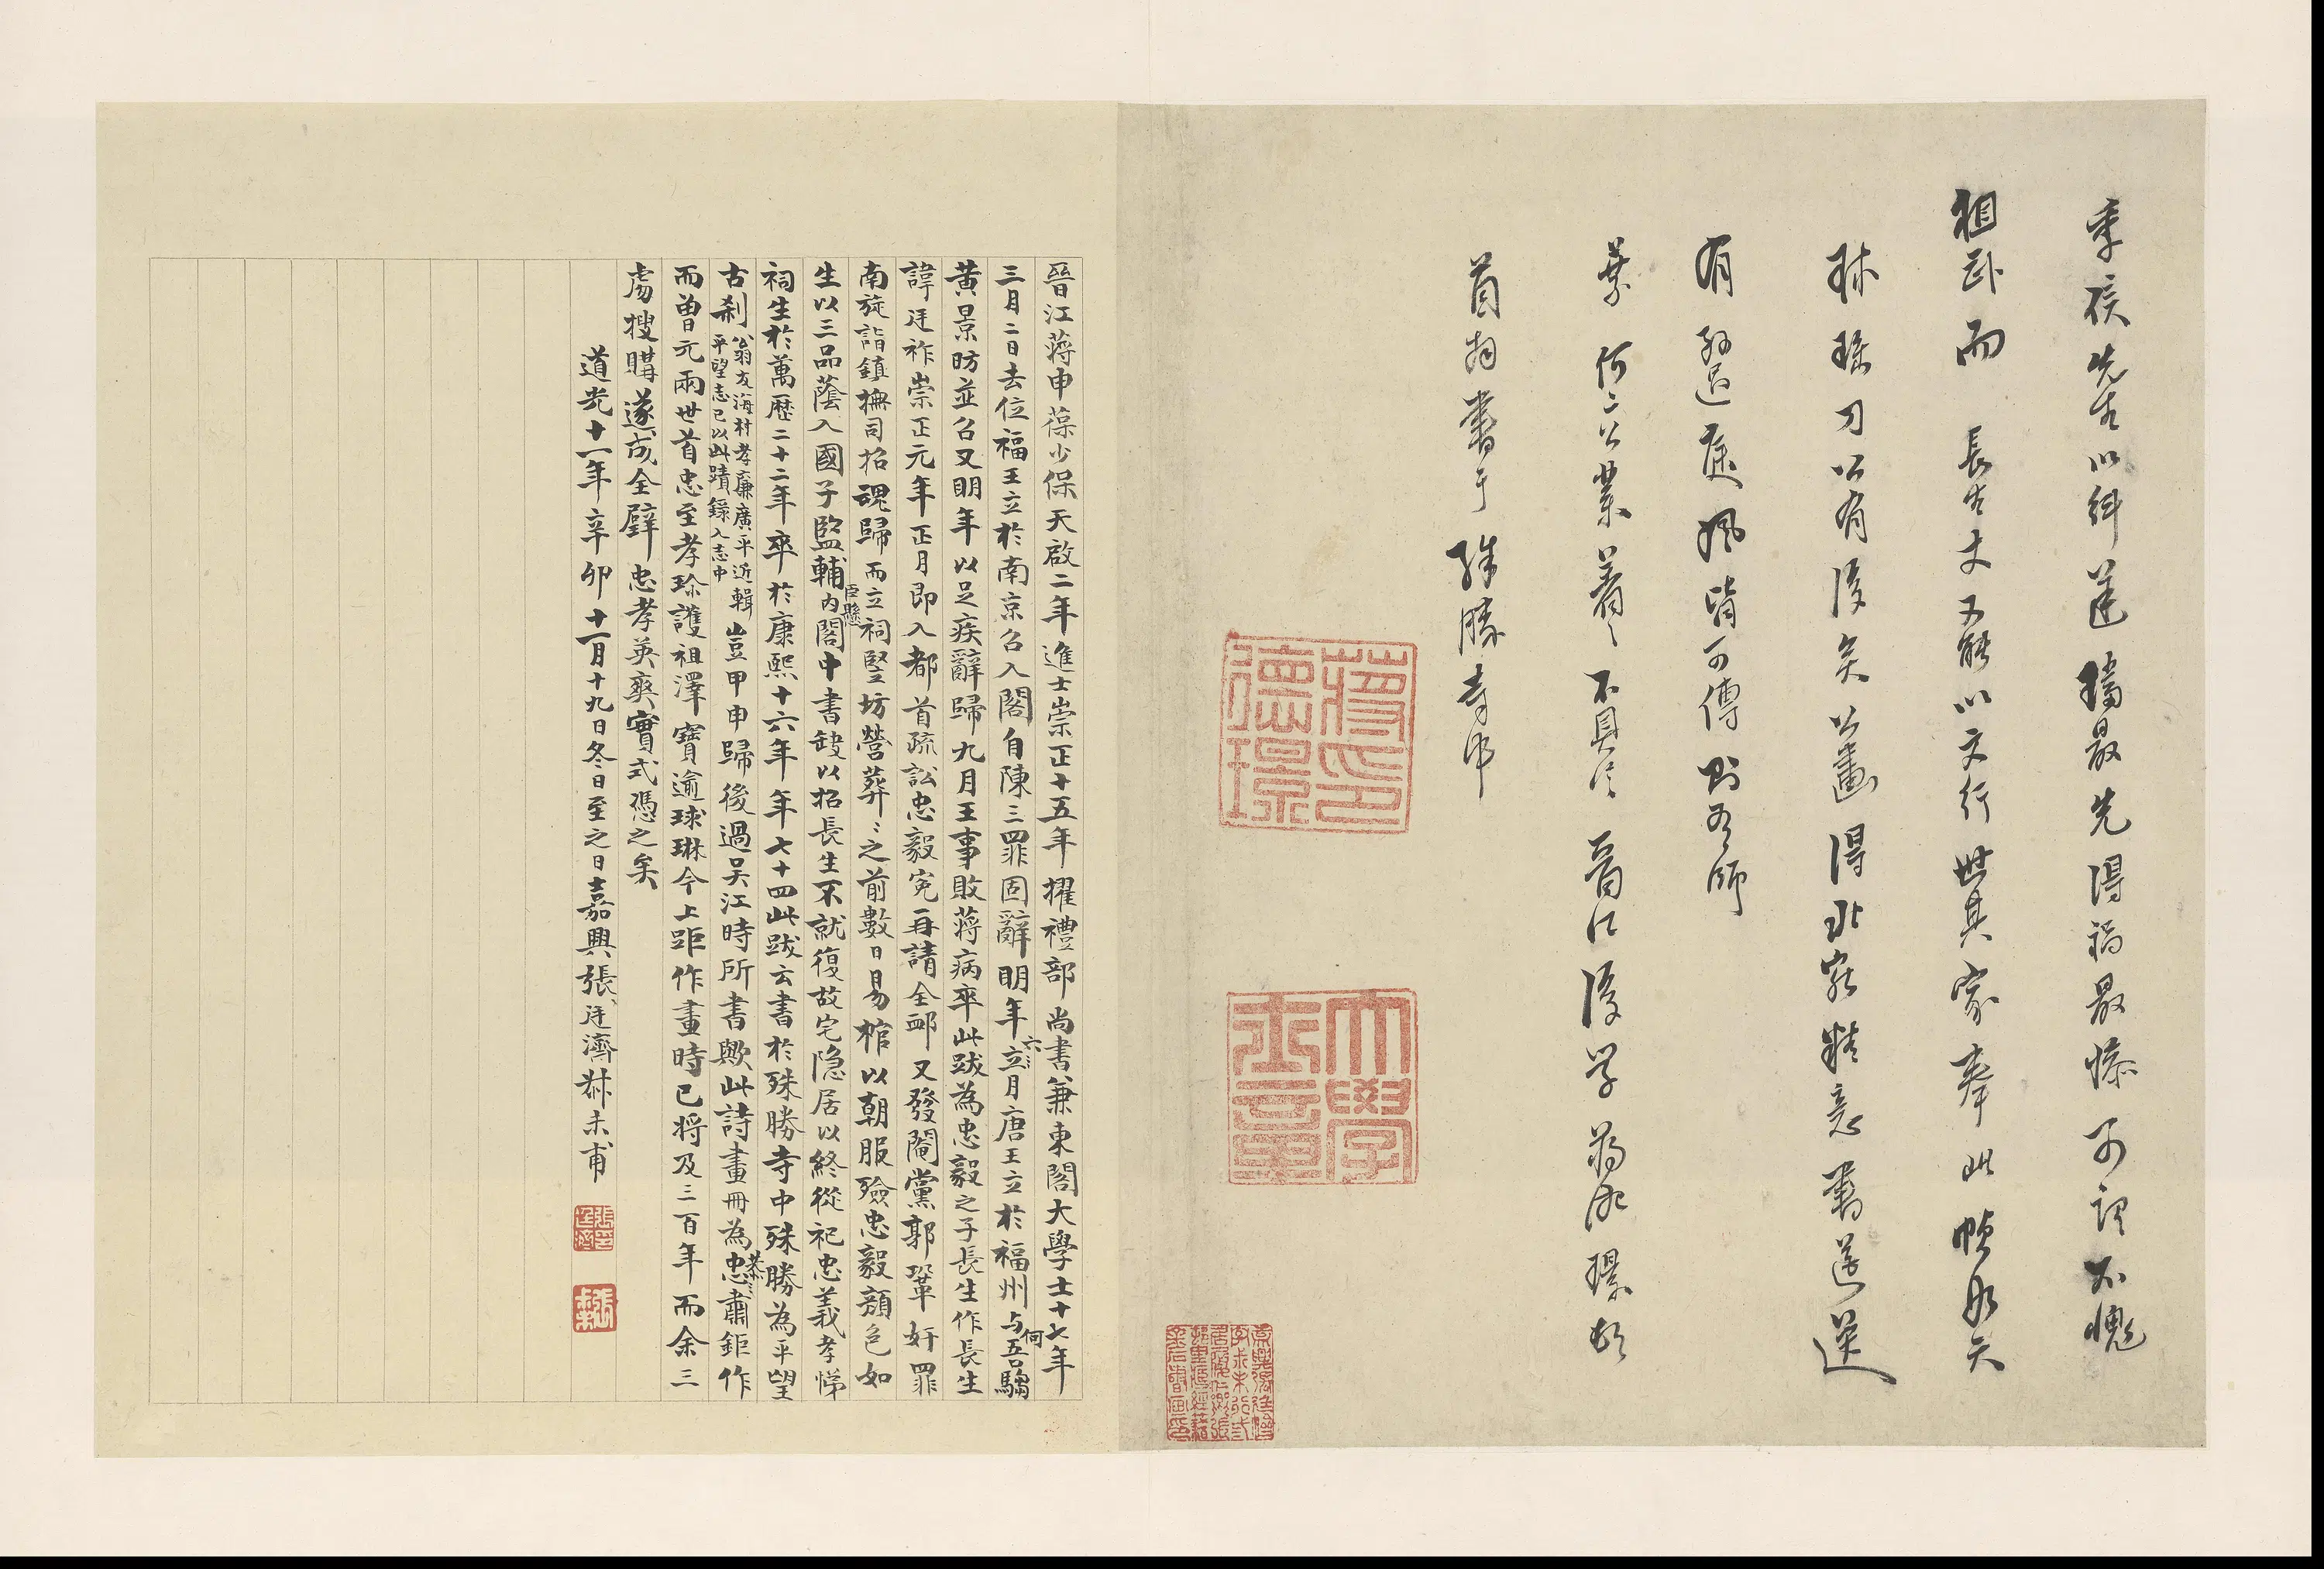 季侯先生以糾逆璫最先得禍最慘可謂不愧
祖武而 長生丈又能以文行世其家奉此幀如天
球 刀公有後矣公畫得北苑精意書遒逆
有 風皆可傳則吾師
葉何二公業著之不具論 晉江後學蔣德璟頓
首拜書于殊勝寺中
蔣德璟印
大學士章
晉江蔣申葆少保天啟二年進士崇正十五年擢禮部尚書兼東閣大學士十七年
三月二日去位福王立於南京召入閣自陳三罪固辭明年立六月唐王立於福州与何吾騶
黃景昉並召又明年以足疾辭歸九月王事敗蔣病卒此跋為忠毅之子長生作長生
諱廷祚崇正元年正月即入都首疏訟忠毅寃再請全卹又發閹黨郭鞏奸罪
南旋詣鎮撫司招魂歸而立祠堅坊營葬之前數日易棺以朝服殮忠毅顏色如
生以三品蔭入國子監輔臣懸內閣中書缺以招長生不就復故宅隱居以終從祀忠義孝悌
祠生於萬歷二十二年卒於康熙十六年年七十四此跋云書於殊勝寺中殊勝為平望
古刹翁友海村孝廉廣平近輯平望志已以此蹟錄入志中豈甲申歸後過吳江時所書歟此詩畫冊為忠肅鉅作
而曾元兩世首忠至孝珍護祖澤寶逾球琳今上距作畫時已將及三百年而余三
虜搜購遂成全璧忠孝英爽實式憑之矣
道光十一年辛卯十一月十九日冬日至之日嘉興張廷濟叔未甫
張廷濟印
張叔未